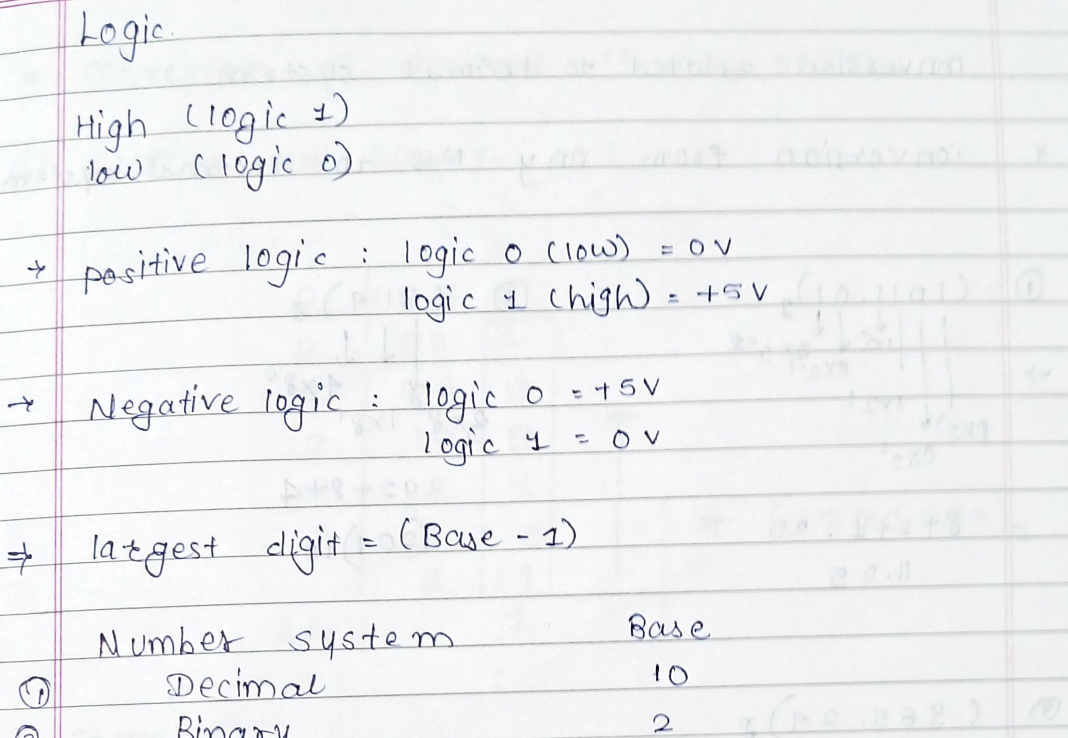 Logic.
High (logic 1)
low (logic 0)
→ positive logic : logic 0 (low) = 0V
logic 1 (high) = +5V
→ Negative logic : logic 0 = +5V
logic 1 = 0V
⇒ largest digit = (Base - 1)
Number system Base
① Decimal 10
② Binary 2